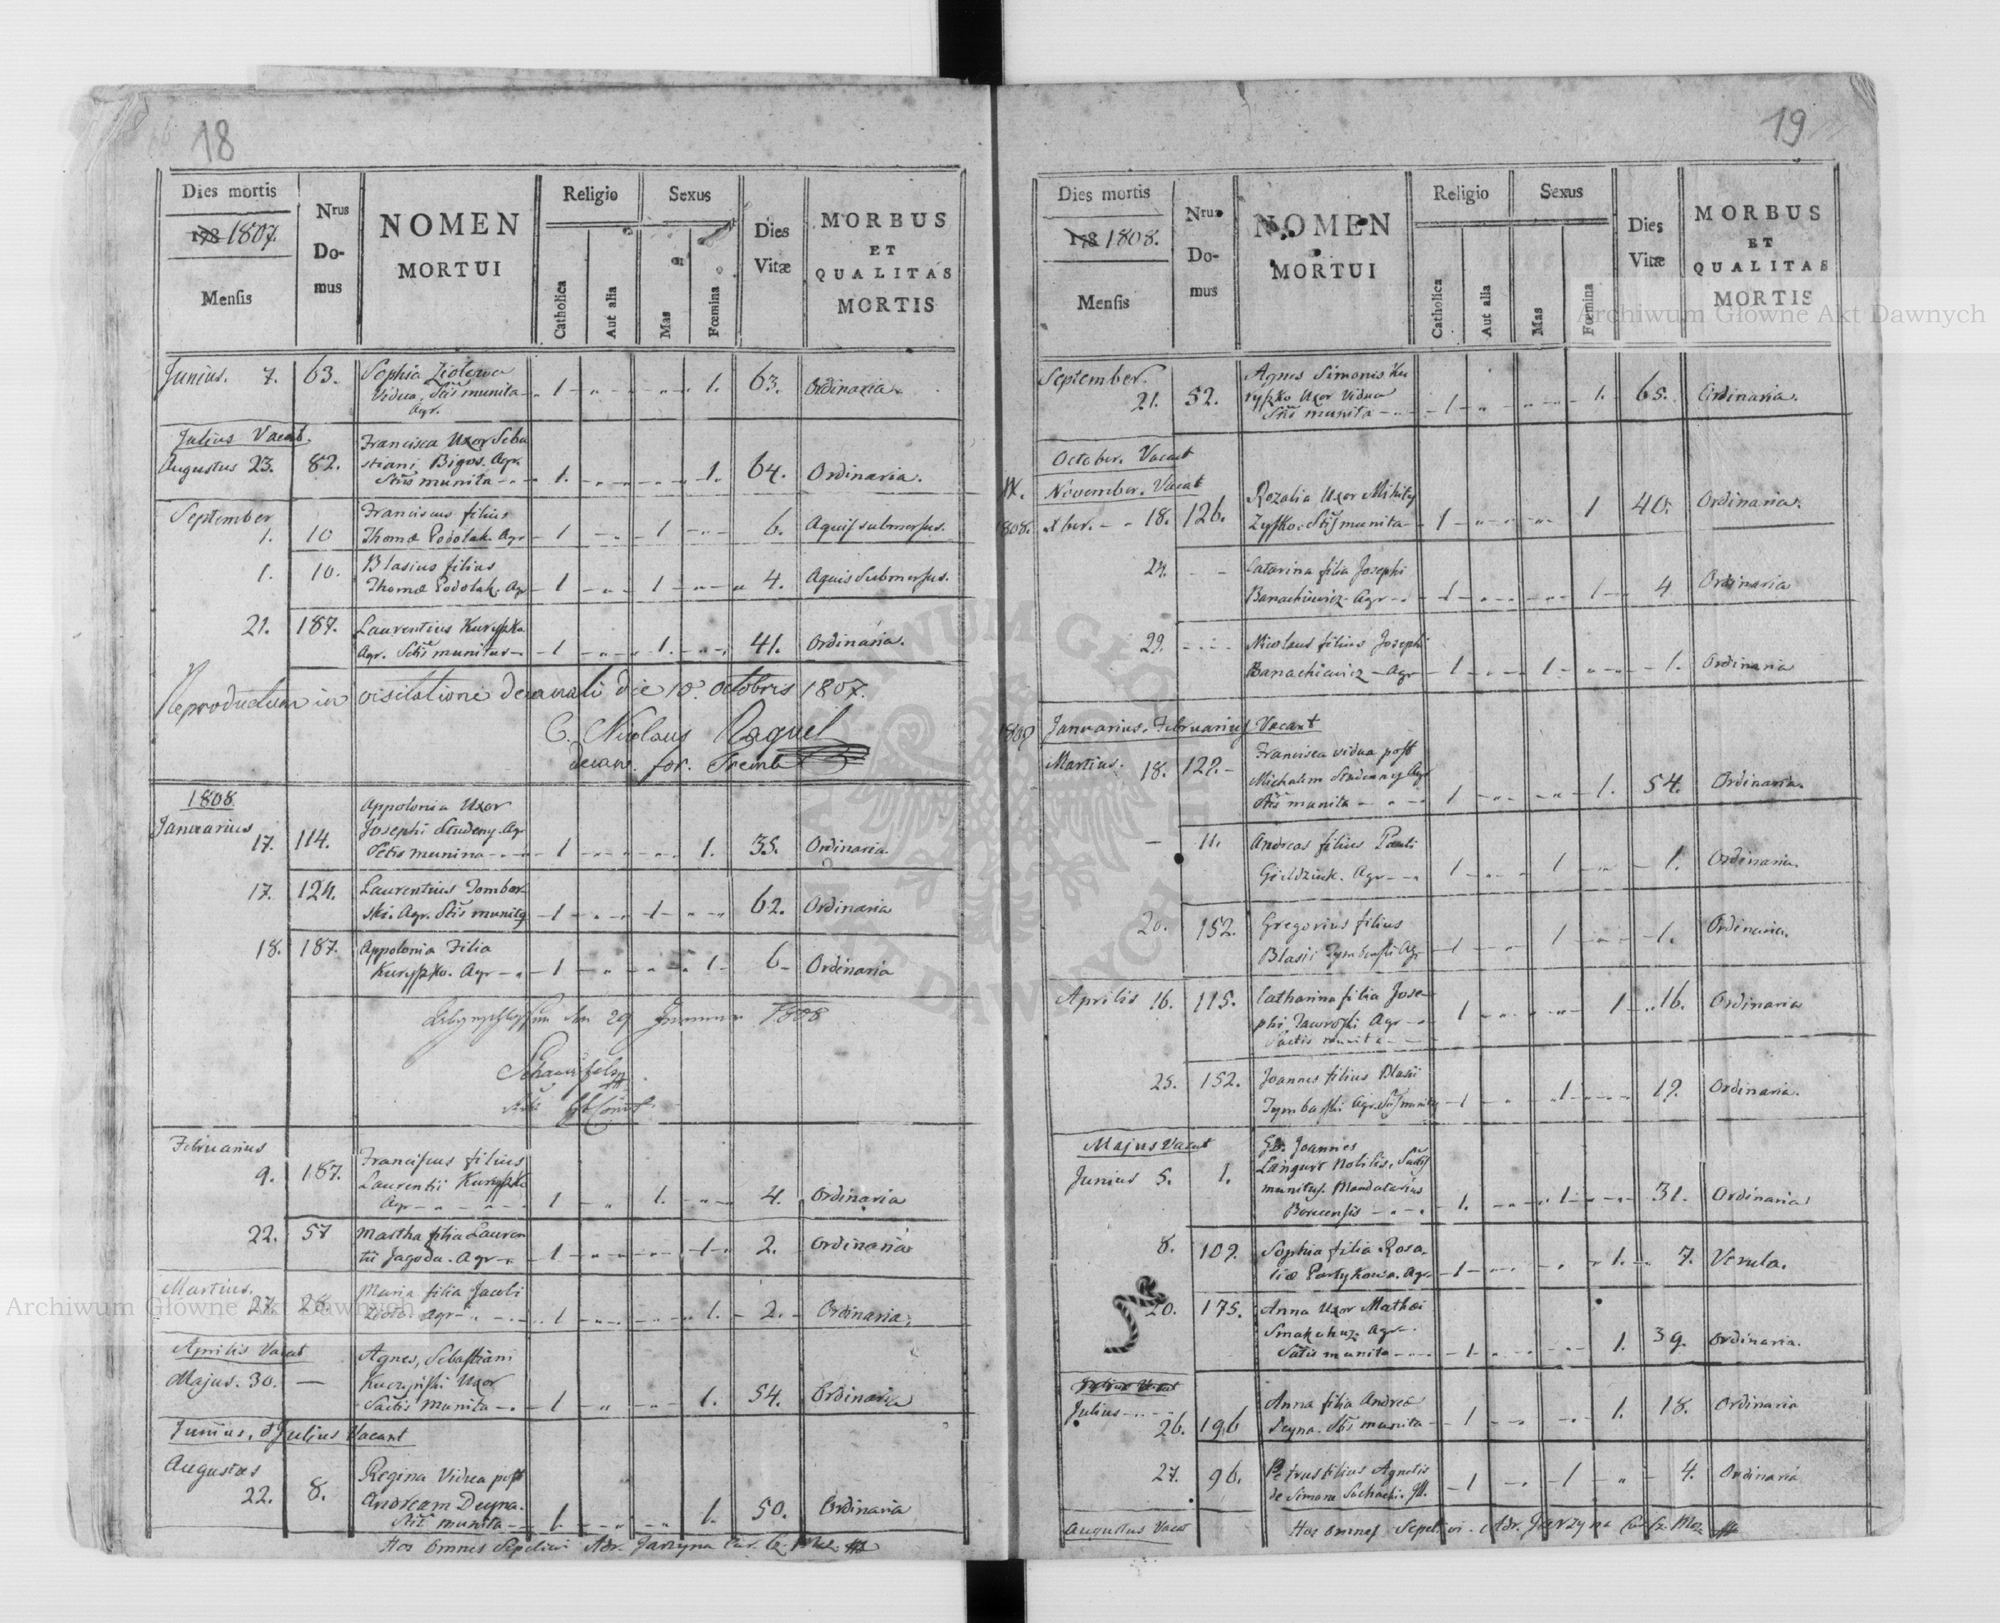 18
Dies mortis
178 1807.
Mensis
Nrus
Do-
mus
NOMEN
MORTUI
Religio
Catholica
Aut alia
Sexus
Mas
Fœmina
Dies
Vitæ
MORBUS
ET
QUALITAS
MORTIS
Junius. 7. 63. Sophia 1 1. 63. Ordinaria.
Vidua. Stis munita
Agr.
Julius Vacat. Francisca Uxor Seba
Augustus 23. 82. stiani Bigos. Agr. 1. 1. 64. Ordinaria.
Stis munita
September Franciscus filius
1. 10 Thomæ Podolak. Agr 1 1 6. Aquis submersus.
1. 10. Blasius filius
Thomæ Podolak. Agr 1 1 4. Aquis Submersus.
21. 187. Laurentius Kuryszko
Agr. Sctis munitus 1 1. 41. Ordinaria.
Reproductum in visitatione decanali die 10 octobris 1807.
C. Nicolaus Raquel
decan. for.
1808
Januarius Appolonia Uxor
17. 114. Josephi Studeny. Agr
Sctis munina 1 1. 35. Ordinaria
17. 124. Laurentius Dombor
ski. Agr. Stis munitg 1 1 62. Ordinaria
18. 187. Appolonia Filia
Kuryszko. Agr 1 1. 6 Ordinaria
29 1808
Februarius
9. 187. Franciscus filius
Laurentii Kuryszko
Agr 1 1. 4. Ordinaria
22. 57 Martha filia Lauren
tii Jagoda. Agr 1 1 2. Ordinaria
Martius. Maria filia Jacobi
27. 28. Agr 1 1. 2. Ordinaria.
Aprilis Vacat Agnes, Sebastiani
Majus. 30. — Uxor
Sactis Munita 1 1. 54. Ordinaria
Junius, & Julius Vacant
Augustus Regina Vidua post
22. 8. Andream Deyna.
Stis munita 1. 1. 50. Ordinaria
Hos Omnes Sepelivi Adr. Jarzyna
19
Dies mortis
178 1808.
Mensis
Nrus
Do-
mus
NOMEN
MORTUI
Religio
Catholica
Aut alia
Sexus
Mas
Fœmina
Dies
Vitæ
MORBUS
ET
QUALITAS
MORTIS
September. Agnes Simonis Ku
21. 52. ryszko Uxor Vidua
Stis munita 1 1. 65. Ordinaria.
October. Vacat
IX. November. Vacat Rozalia Uxor
1808. Xber. 18. 126. Stis munita 1 1 40. Ordinaria.
24. Catarina filia Josephi
Banachiewicz Agr 1 1 4 Ordinaria
29. Nicolaus filius Josephi
Banachiewicz Agr 1 1 1. Ordinaria
1809 Januarius. Februarius Vacant
Martius. 18. 129. Francisca vidua post
Michalem Studenny Agr
Stis munita 1 1. 54. Ordinaria.
— 11. Andreas filius Pauli
Agr 1 1 1. Ordinaria.
20. 152. Gregorius filius
Blasii Agr 1 1 1. Ordinaria.
Aprilis 16. 115. Catharina filia Jose-
phi Jaworski Agr 1 1 16. Ordinaria
Sactis munita
25. 152. Joannes filius Blasii
Agr. Stis munitg 1 1 19. Ordinaria.
Majus Vacat Joannes
Junius 5. 1. Nobilis, Sactis
munitus. Mandatarius 1. 1 31. Ordinaria
8. 109. Sophia filia Rosa-
liæ Partykowa. Agr 1 1. 7. Verula.
20. 175. Anna Uxor Mathæi
Agr
Sactis munita 1 1. 39. Ordinaria.
Julius Vacat
Julius Anna filia Andreæ
26. 196 Deyna. Stis munita 1 1. 18. Ordinaria
27. 96. Petrus filius Agnetis
de Simone 1 1 4. Ordinaria
Augustus Vacat Hos omnes Sepelivi. Adr. Jarzyna
Archiwum Główne Akt Dawnych
Archiwum Główne Akt Dawnych
ARCHIWUM GŁÓWNE AKT DAWNYCH